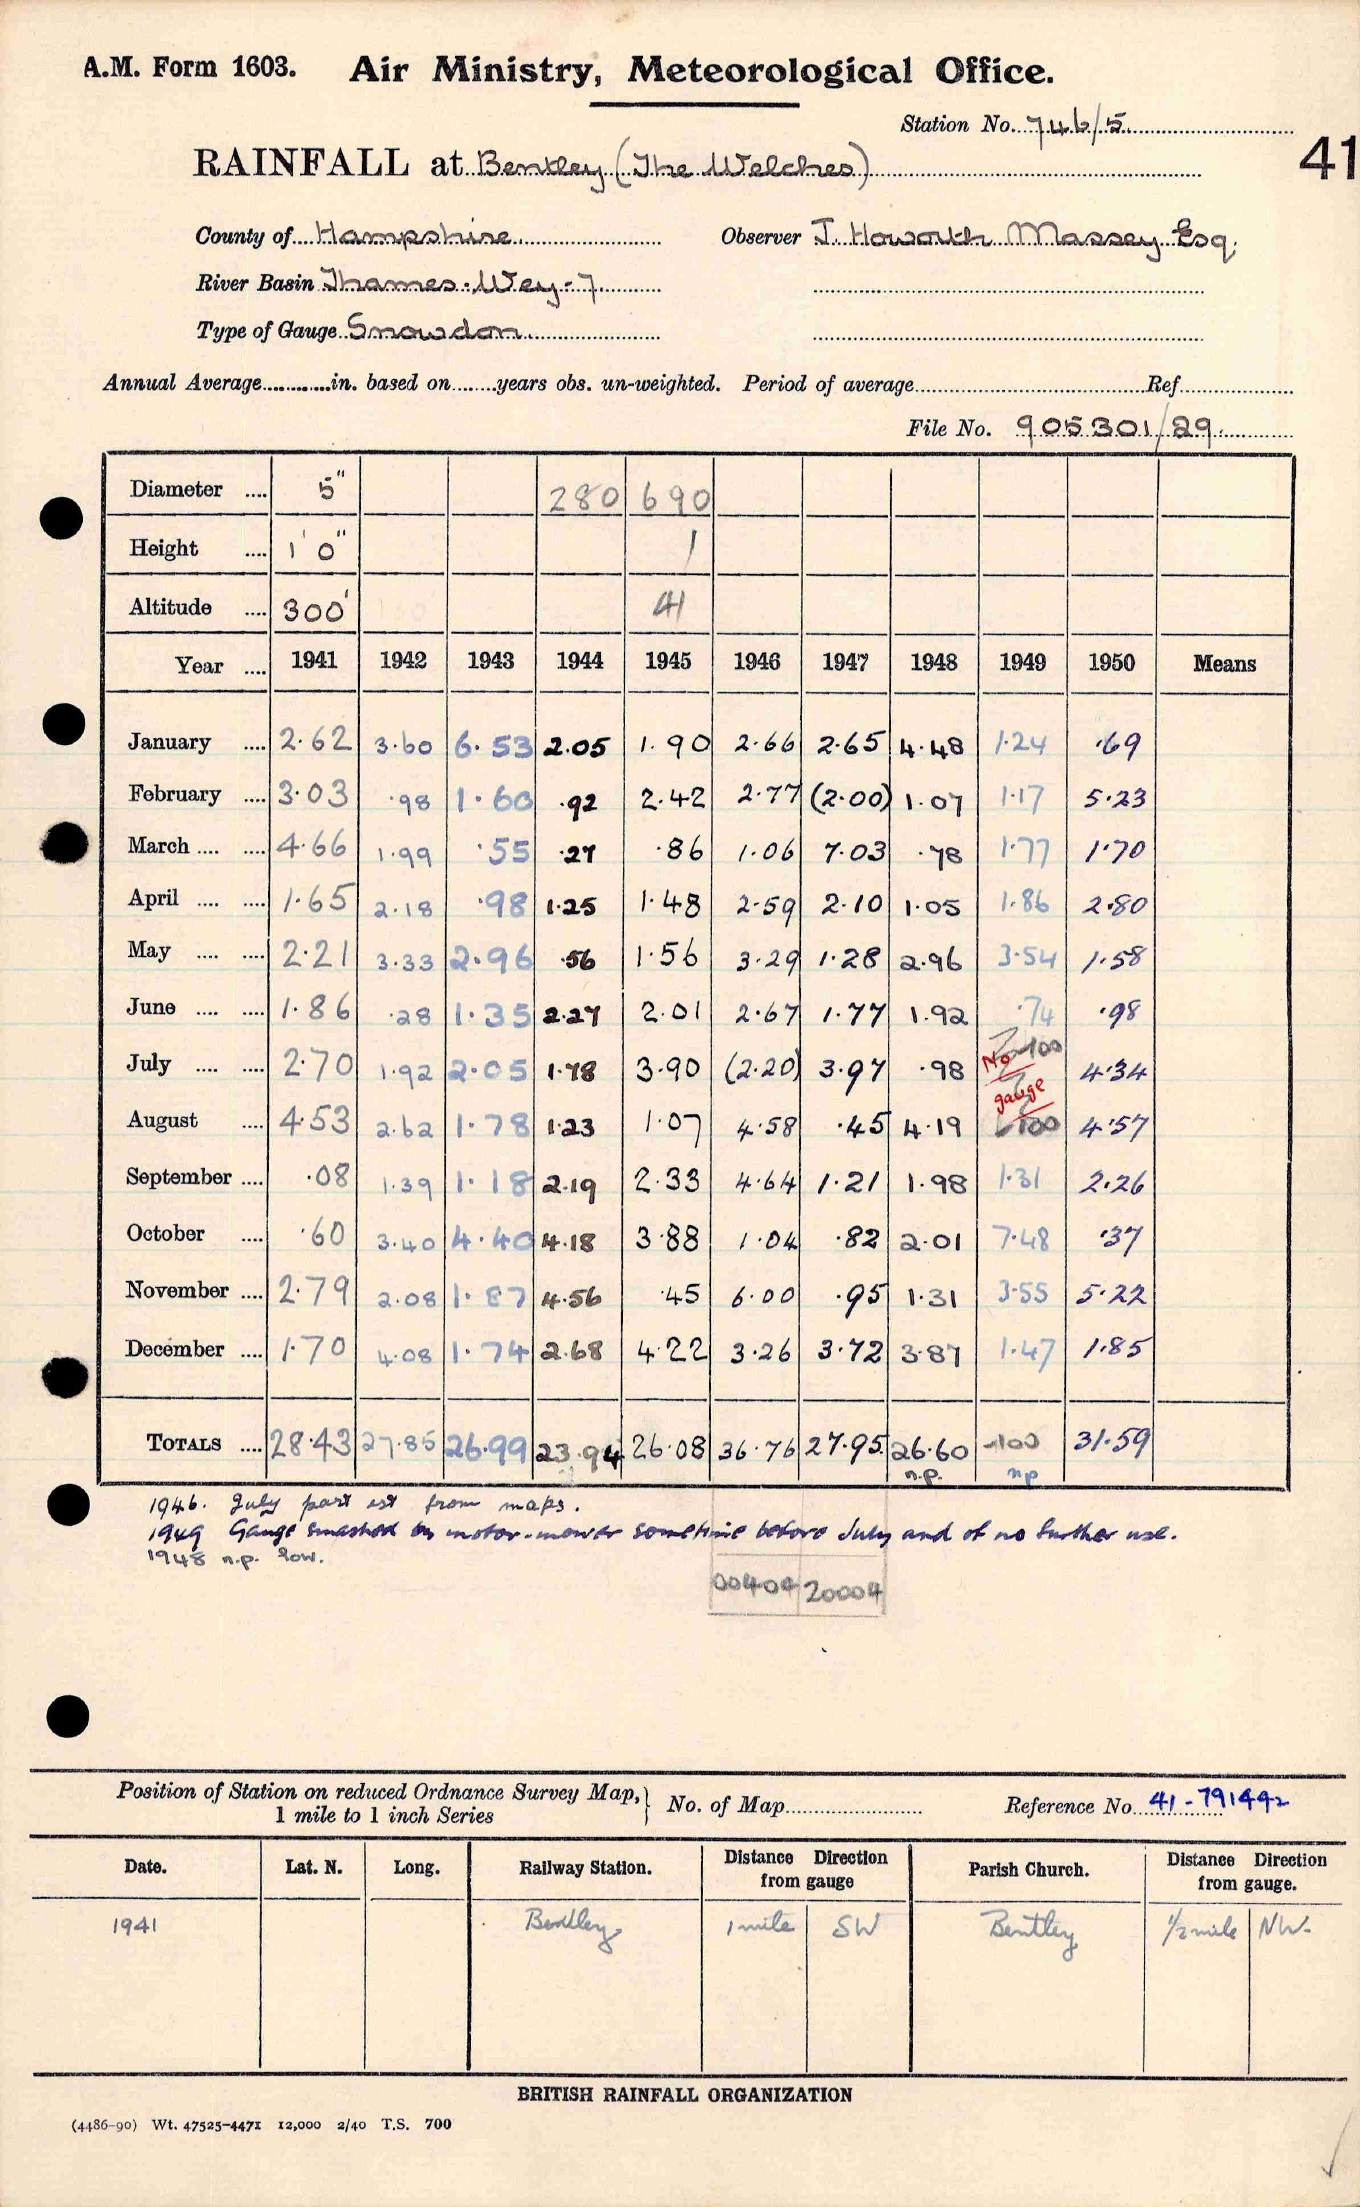 A.M. Form 1603. Air Ministry, Meteorological Office.
Station No. 746/5
41
RAINFALL at Bentley (The Welches)
County of Hampshire Observer J. Howorth Massey Esq.
River Basin Thames. Wey - 7
Type of Gauge Snowdon
Annual Average............in. based on.......years obs. un-weighted. Period of average Ref
File No. 905301/29
Diameter .... 5" 280 690
Height .... 1' 0" 1
Altitude .... 300' 41
Year .... 1941 1942 1943 1944 1945 1946 1947 1948 1949 1950 Means
January .... 2.62 3.60 6.53 2.05 1.90 2.66 2.65 4.48 1.24 .69
February .... 3.03 .98 1.60 .92 2.42 2.77 (2.00) 1.07 1.17 5.23
March .... .... 4.66 1.99 .55 .27 .86 1.06 7.03 .78 1.77 1.70
April .... .... 1.65 2.18 .98 1.25 1.48 2.59 2.10 1.05 1.86 2.80
May .... .... 2.21 3.33 2.96 .56 1.56 3.29 1.28 2.96 3.54 1.58
June .... .... 1.86 .28 1.35 2.27 2.01 2.67 1.77 1.92 .74 .98
July .... .... 2.70 1.92 2.05 1.78 3.90 (2.20) 3.97 .98 No -100 4.34
gauge
August .... 4.53 2.62 1.78 1.23 1.07 4.58 .45 4.19 -100 4.57
September .... .08 1.39 1.18 2.19 2.33 4.64 1.21 1.98 1.31 2.26
October .... .60 3.40 4.40 4.18 3.88 1.04 .82 2.01 7.48 .37
November .... 2.79 2.08 1.87 4.56 .45 6.00 .95 1.31 3.55 5.22
December .... 1.70 4.08 1.74 2.68 4.22 3.26 3.72 3.87 1.47 1.85
TOTALS .... 28.43 27.85 26.99 23.94 26.08 36.76 27.95 26.60 -100 31.59
n.p. np
1946. July part est from maps.
1949 Gauge smashed by motor-mower sometime before July and of no further use.
1948 n.p. low.
00404 20004
Position of Station on reduced Ordnance Survey Map,} No. of Map Reference No. 41 - 791442
1 mile to 1 inch Series
Date. Lat. N. Long. Railway Station. Distance Direction from gauge Parish Church. Distance Direction from gauge.
1941 Bentley 1 mile SW Bentley 1/2 mile NW.
BRITISH RAINFALL ORGANIZATION
(4486-90) Wt. 47525-4471 12,000 2/40 T.S. 700